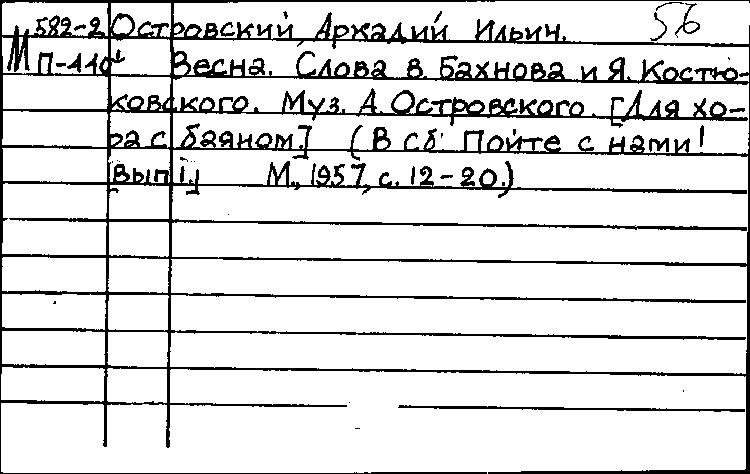 582-2 Островский, Аркадий Ильич. 56
М П-110 Весна. Слова В. Бахнова и Я. Костю-
ковского. Муз. А. Островского. [Для хо-
ра с баяном.] (В сб: Пойте с нами!
[Вып 1.] М., 1957, с. 12-20.)